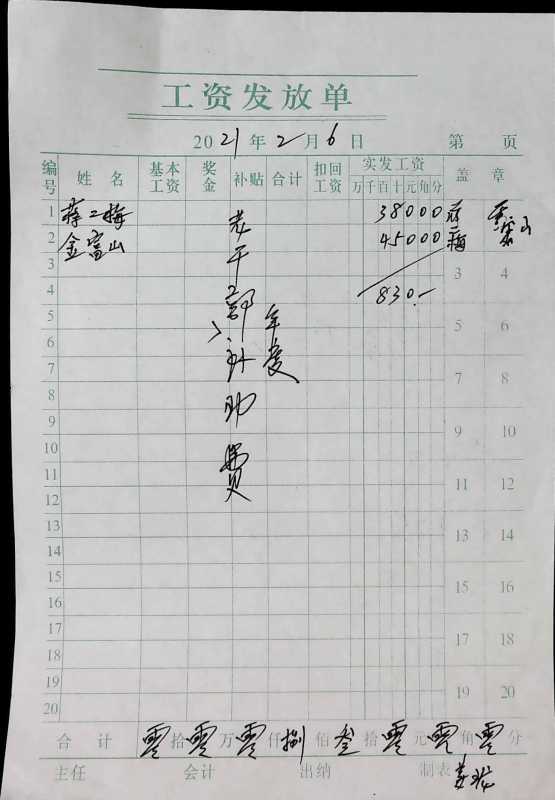 工资发放单
2021年2月6日 第 页
编号 姓名 基本工资 奖金 补贴 合计 扣回工资 实发工资 盖章
万千百十元角分
1 蒋二梅 38000 蒋二梅
2 金富山 45000 金富山
3 3 4
4 830.-
5 5 6
6
7 7 8
8
9 9 10
10
11 11 12
12
13 13 14
14
15 15 16
16
17 17 18
18
19 19 20
20
老干部补助费
年度
合计 零拾零万零仟捌佰叁拾零元零角零分
主任 会计 出纳 制表